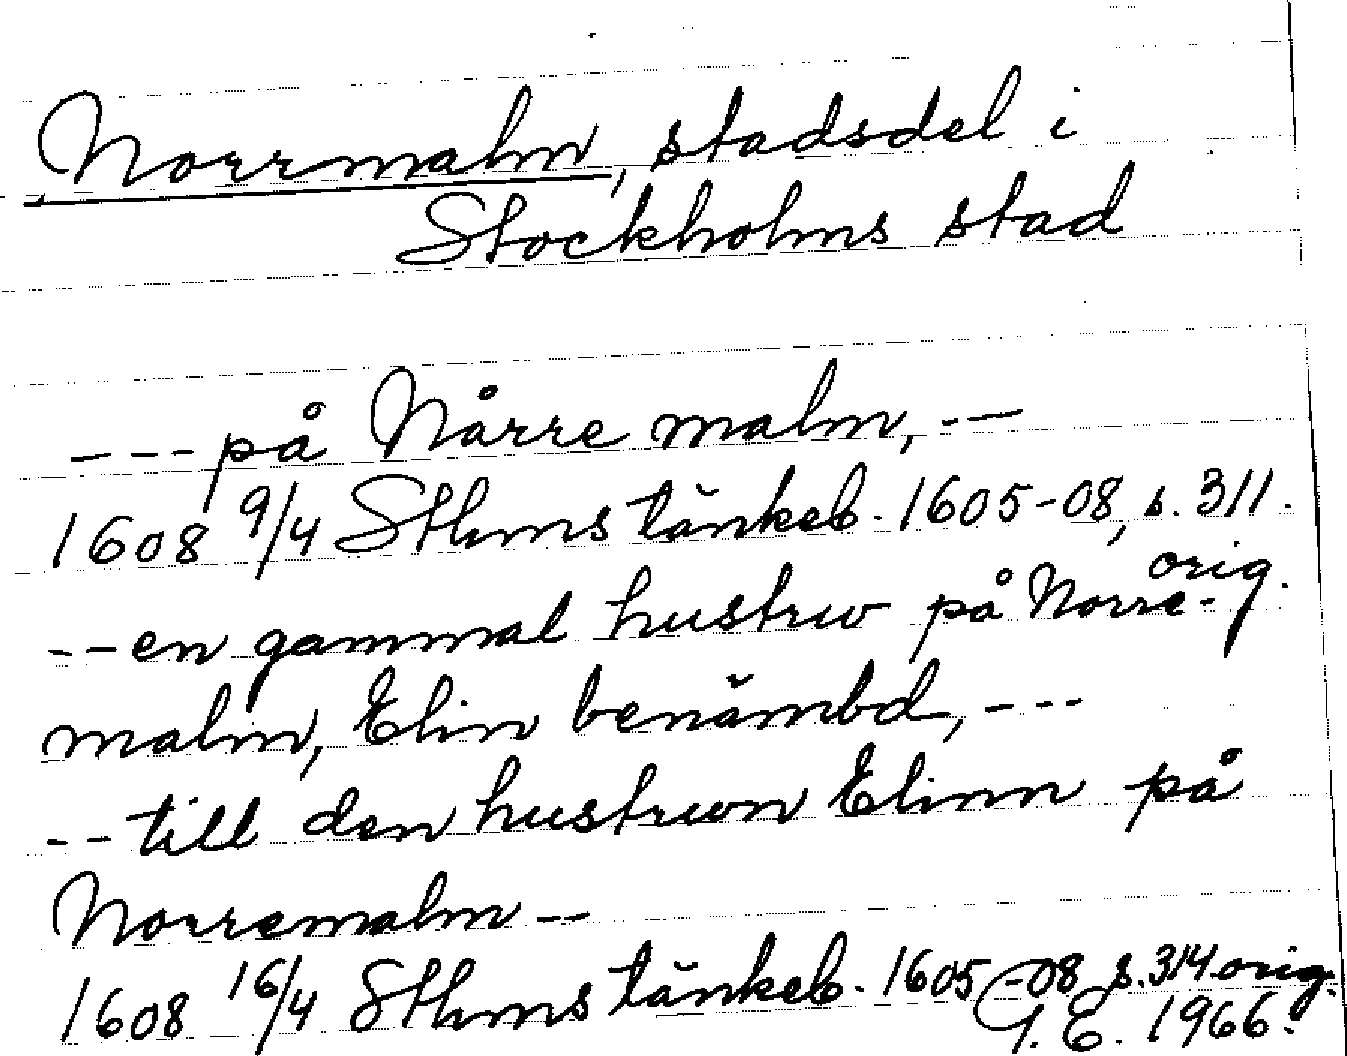 Norrmalm, stadsdel i
Stockholms stad
--- på Nårre malm, --
1608 9/4 Sthms tänkeb. 1605-08, s. 311.
orig.
-- en gammal hustrw på Norre-
malm, Elin benämbd, ---
-- till den hustrwn Elinn på
Norremalm --
1608 16/4 Sthms tänkeb. 1605-08 s. 314 orig.
G. E. 1966.